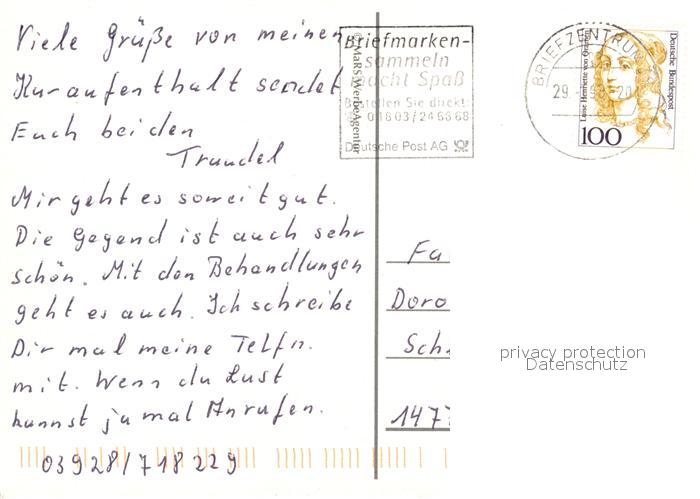 Viele Grüße von meinem
Kuraufenthalt sendet
Euch beiden
Traudel
Mir geht es soweit gut.
Die Gegend ist auch sehr
schön. Mit den Behandlungen
geht es auch. Ich schreibe
Dir mal meine Telfn.
mit. Wenn du Lust
kannst ja mal Anrufen.
03928/718229
Briefmarken-
sammeln
macht Spaß
Bestellen Sie direkt:
01803/246868
Deutsche Post AG
©MaRS WerbeAgentur
BRIEFZENTRUM
29.
Luise Henriette von Oranien
Deutsche Bundespost
100
Fa
Doro
Sch
1477
privacy protection
Datenschutz